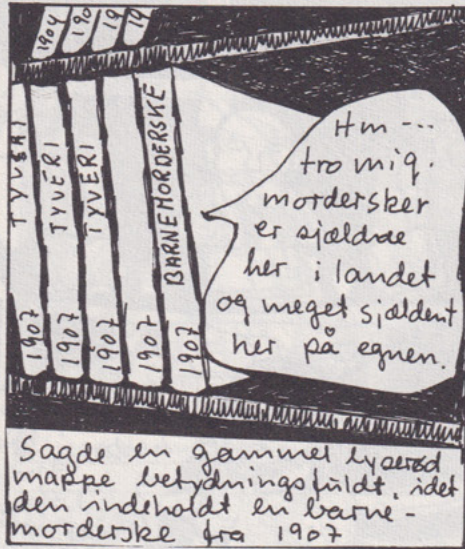 1904
190
19
19
TYVERI
1907
TYVERI
1907
TYVERI
1907
1907
BARNEMORDERSKE
1907
Hm ---
tro mig.
mordersker
er sjældne
her i landet
og meget sjældent
her på egnen.
Sagde en gammel lyserød
mappe betydningsfuldt, idet
den indeholdt en barne-
morderske fra 1907